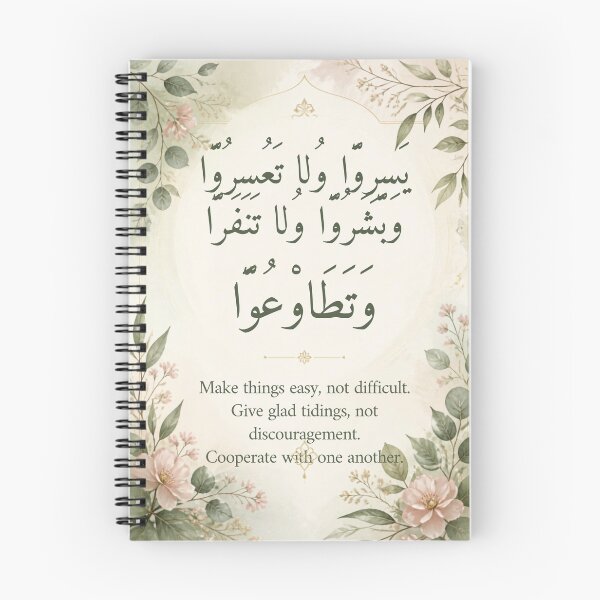 يَسِروّا وُلا تَعُسِرُوّا
وَبّشَرُوّا وُلا تَنَفَرّا
وَتَطَاوْعُوّا
Make things easy, not difficult.
Give glad tidings, not
discouragement.
Cooperate with one another.